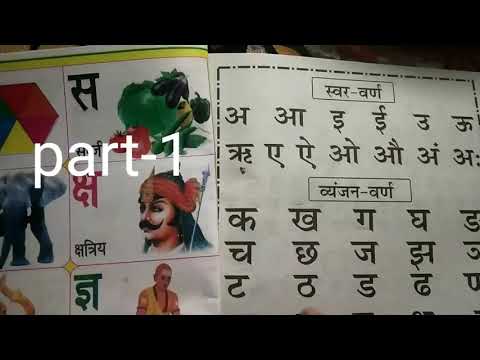 स
part-1
क्ष
क्षत्रिय
ज्ञ
स्वर-वर्ण
अ आ इ ई उ ऊ
ऋ ए ऐ ओ औ अं अः
व्यंजन-वर्ण
क ख ग घ
च छ ज झ
ट ठ ड ढ